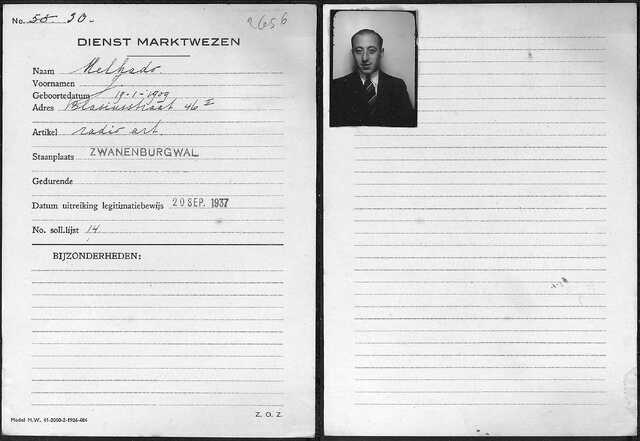 No. 58 30.
2656
DIENST MARKTWEZEN
Naam Melhado
Voornamen
Geboortedatum 19-1-1909
Adres Blasiusstraat 46 I
Artikel radio art.
Staanplaats ZWANENBURGWAL
Gedurende
Datum uitreiking legitimatiebewijs 20 SEP. 1937
No. soll.lijst 14
BIJZONDERHEDEN:
Z. O. Z.